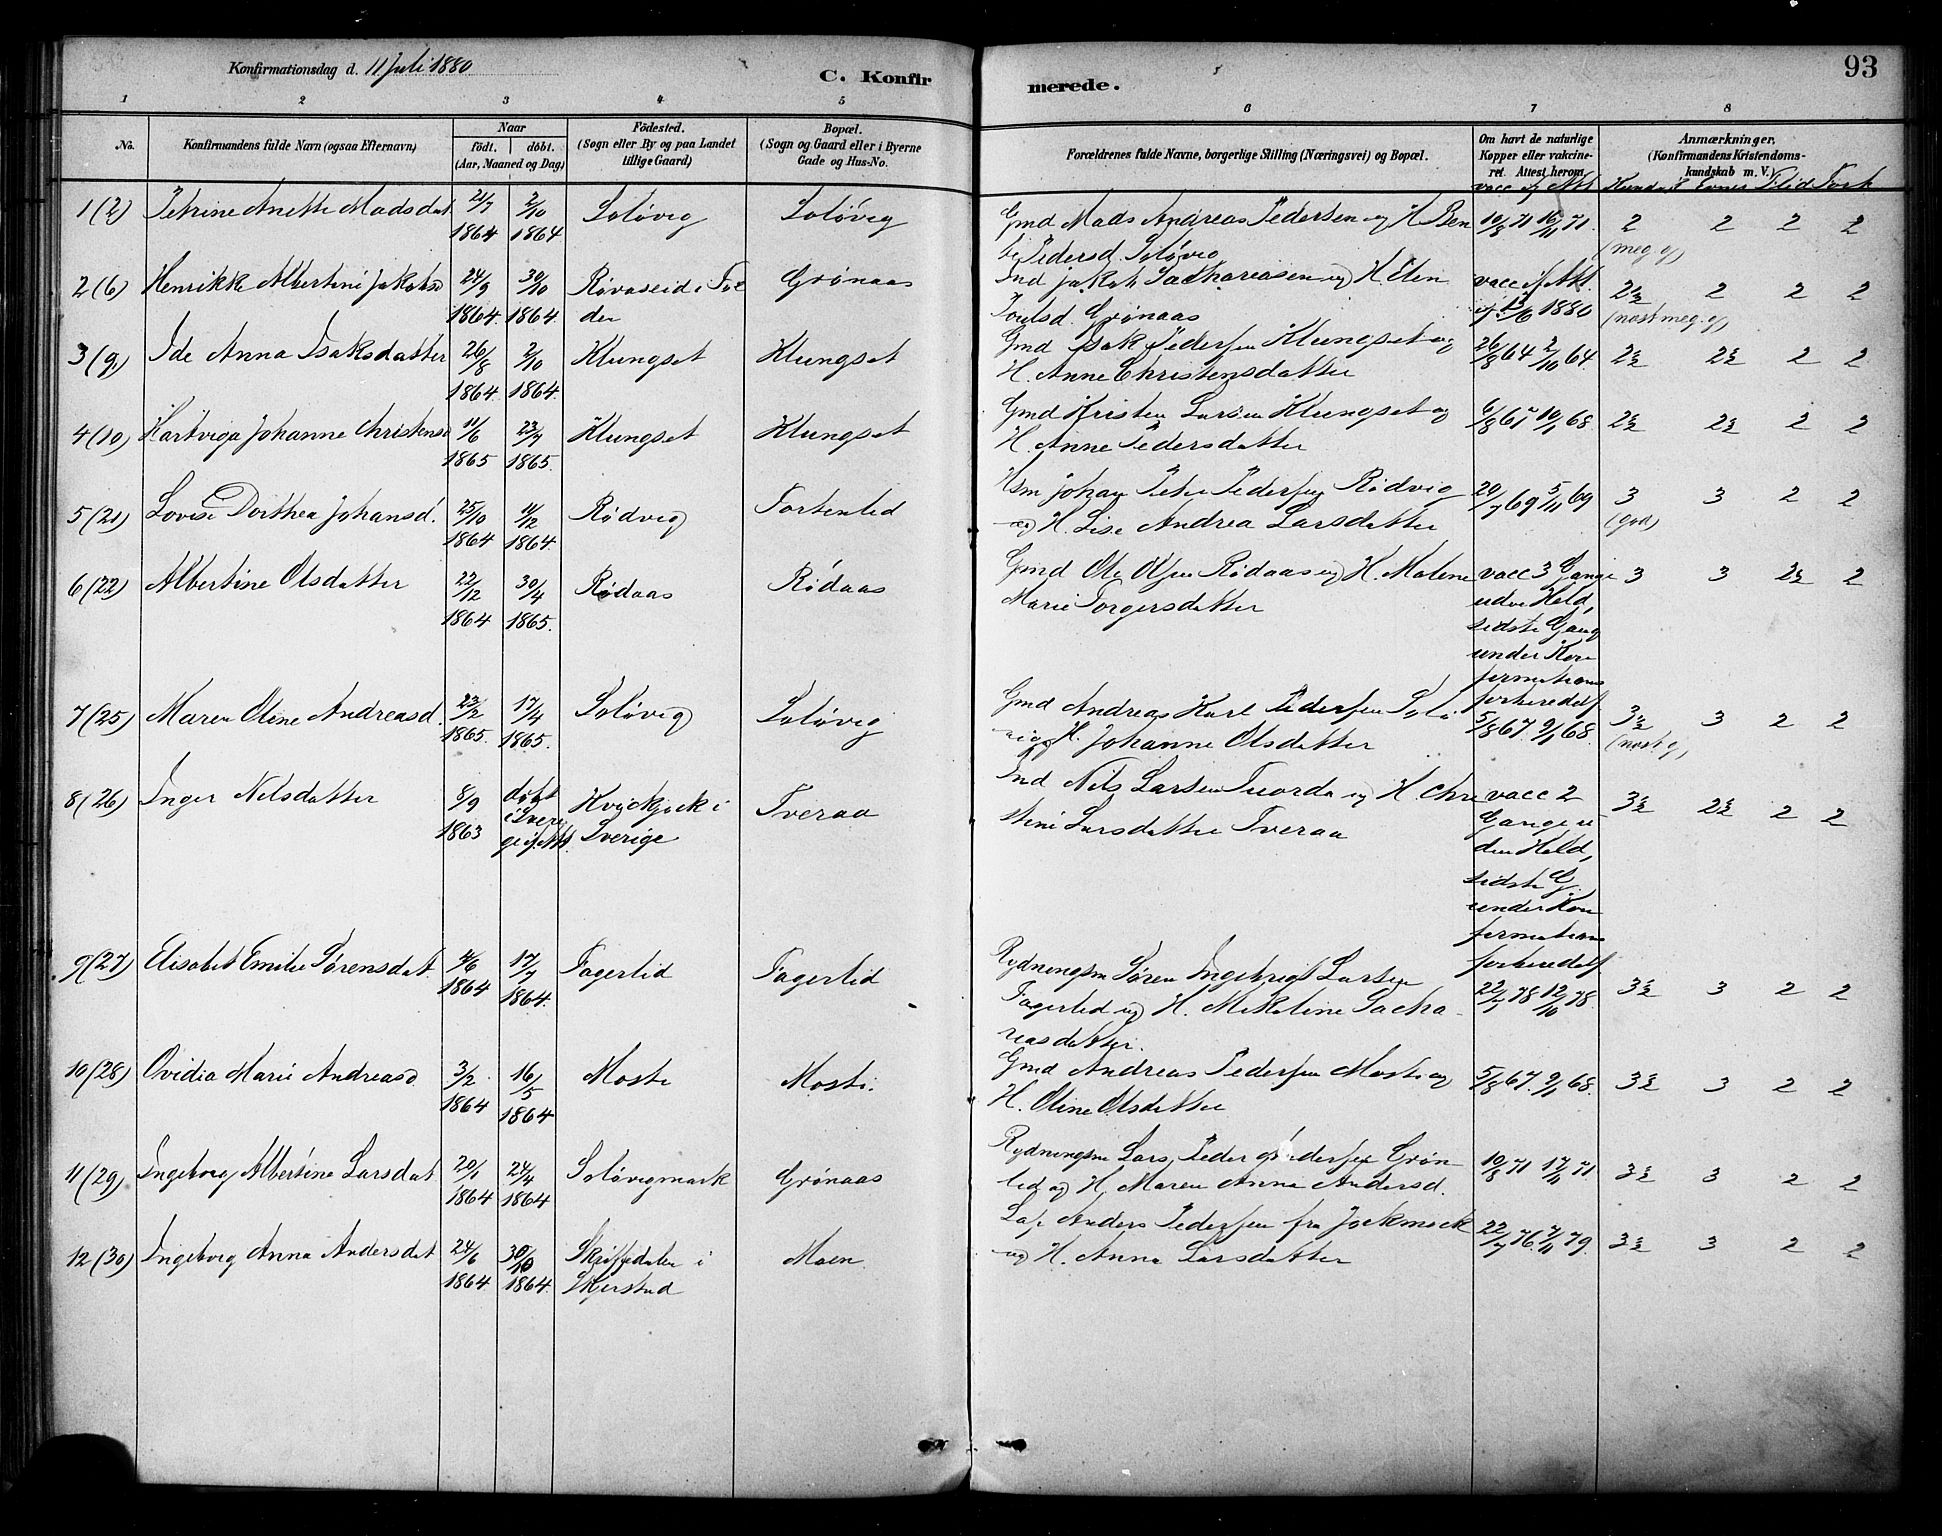 93
Konfirmationsdag d. 11 Juli 1880
C. Konfirmerede.
1 2 3 4 5 6 7 8
No.
Konfirmandens fulde Navn (ogsaa Efternavn)
Naar
födt. döbt.
(Aar, Maaned og Dag)
Födested.
(Sogn eller By og paa Landet
tillige Gaard)
Bopæl.
(Sogn og Gaard eller i Byerne
Gade og Hus-No.
Forældrenes fulde Navne, borgerlige Stilling (Næringsvei) og Bopæl.
Om havt de naturlige
Kopper eller vakcine-
ret. Attest herom.
Anmærkninger.
(Konfirmandens Kristendoms-
kundskab m. V.)
vacc if Att. Kundsk Evner Flid
1 (2) Petrine Anette Madsdat 2/10 Soløvig Soløvig Gmd Mads Andreas Pedersen og H. Ben 10/8 71 16/11 71. 2 2 2 2
1864 1864 Pedersd. Soløvig (meg g)
2 (6) Henrikke Albertine Jakobsd 24/9 30/10 Røvaseid i Grønaas Ind Jakob Sachariasen og H. Elen vacc if Att. 2½ 2 2 2
1864. 1864. Grønaas 1880 (næst meg. g)
3 (9) Ide Anna Isaksdatter 26/8 2/10 Klungset Klungset Gmd Isak Pedersen Klungset og 26/8 64 2/10 64. 2½ 2½ 2 2
1864 1864. H. Anne Christensdatter
4 (10) Hartviga Johanne Christensd 11/6 23/7 Klungset Klungset Gmd Kristen Larsen Klungset og 6/8 67 10/1 68. 2½ 2½ 2 2
1865 1865. H. Anne Pedersdatter
5 (21) Lovise Dorthea Johansd. 25/10 11/12 Rødvig Fortenlid Hsm Johan Peter Pedersen Rødvig 20/7 69 5/11 69 3 3 2 2
1864 1864. og H. Lise Andrea Larsdatter (god)
6 (22) Albertine Olsdatter 22/12 30/4 Rødaas Rødaas Gmd Ole Olsen Rødaas og H. Malene vacc 3 Gange 3 3 2½ 2
1864 1865. Marie Torgersdatter uden Held,
sidste Gang
under Kon
firmations
forberedels
7 (25) Maren Oline Andreasd. 23/2 17/4 Soløvig Soløvig Gmd Andreas Karl Pedersen Solø 5/8 67. 9/1 68. 3½ 3 2 2
1865. 1865. vig og H. Johanne Olsdatter (næst g)
8 (26) Inger Nilsdatter 8/9 døbt Kvickjock i Tveraa Ind Nils Larsen Tuorda og H. Chri vacc 2 3½ 2½ 2 2
1863 i Sveri Sverige stine Larsdatter Tveraa Gange u
ge if. Att. den Held,
sidste G.
under Kon
firmations
forberedels
9 (27) Elisabet Emilie Sørensdat 4/6 17/7 Fagerlid Fagerlid Rydningsm Søren Ingebrigt Larsen 22/7 78 12/10 78. 3½ 3 2 2
1864 1864. Fagerlid og H. Mekeline Sacha
riasdatter.
10 (28) Ovidia Marie Andreasd 3/2 16/5 Moste Moste. Gmd Andreas Pedersen Moste og 5/8 67. 9/1 68. 3½ 3 2 2
1864 1864 H. Oline Olsdatter
11 (29) Ingeborg Albertine Larsdat 20/1 24/4 Soløvigmark Grønaas Rydningsm Lars Peder Pedersen Grøn 10/8 71 17/11 71 3½ 3 2 2
1864 1864 lid og H. Maren Anna Andersd.
12 (30) Ingeborg Anna Andersdat 24/6 30/10 i Moen Lap Anders Pedersen fra Jockmock 22/7 76. 7/11 79. 3½ 3 2 2
1864 1864. Skjerstad og H. Anna Larsdatter